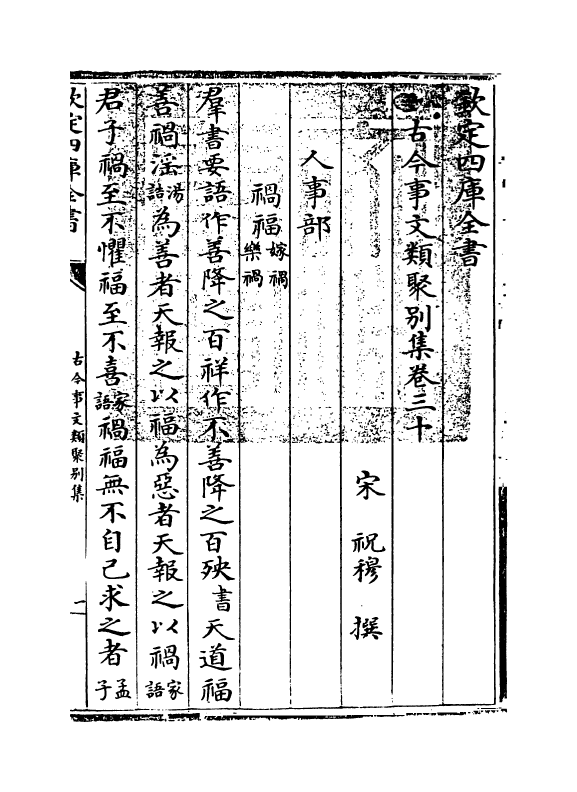 欽定四庫全書
古今事文類聚别集卷三十
宋 祝穆 撰
人事部
禍福嫁禍樂禍
羣書要語作善降之百祥作不善降之百殃書天道福
善禍淫湯誥為善者天報之以福為惡者天報之以禍家語
君子禍至不懼福至不喜家語禍福無不自己求之者孟子
欽定四庫全書
古今事文類聚别集
一